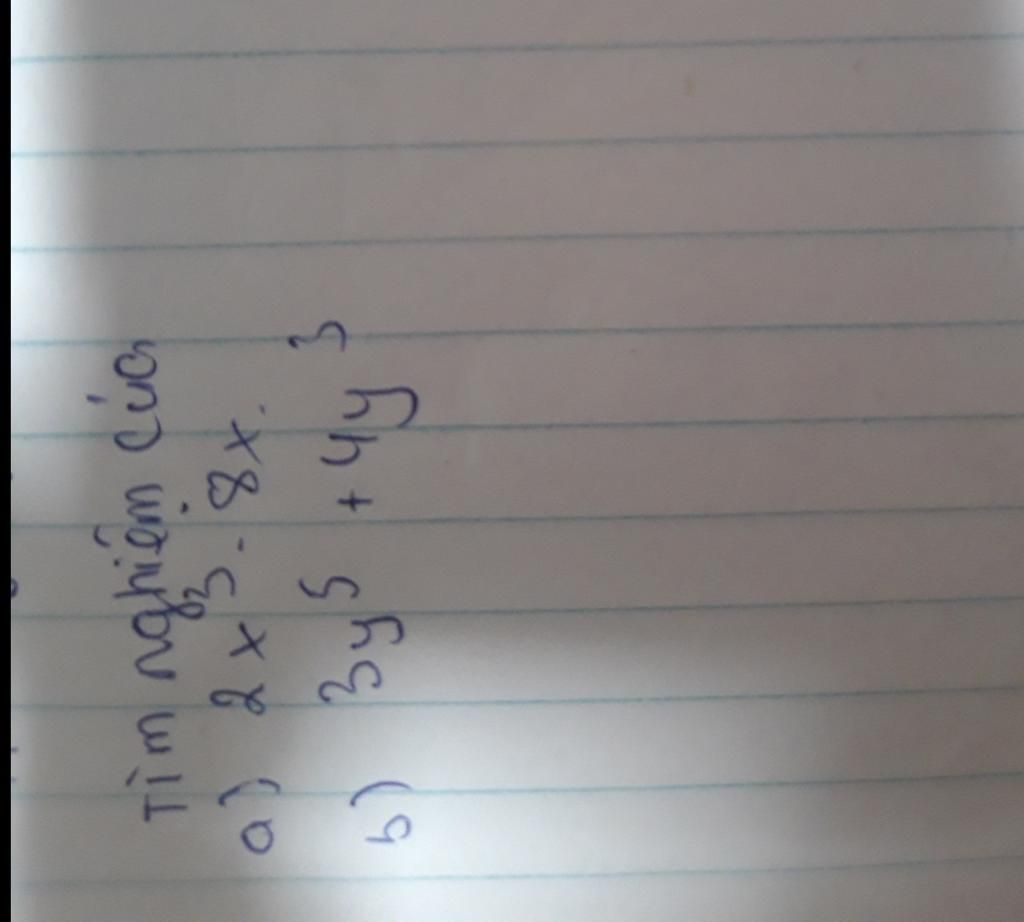 Tìm nghiệm của
a) 2x³ - 8x.
b) 3y⁵ + 4y³